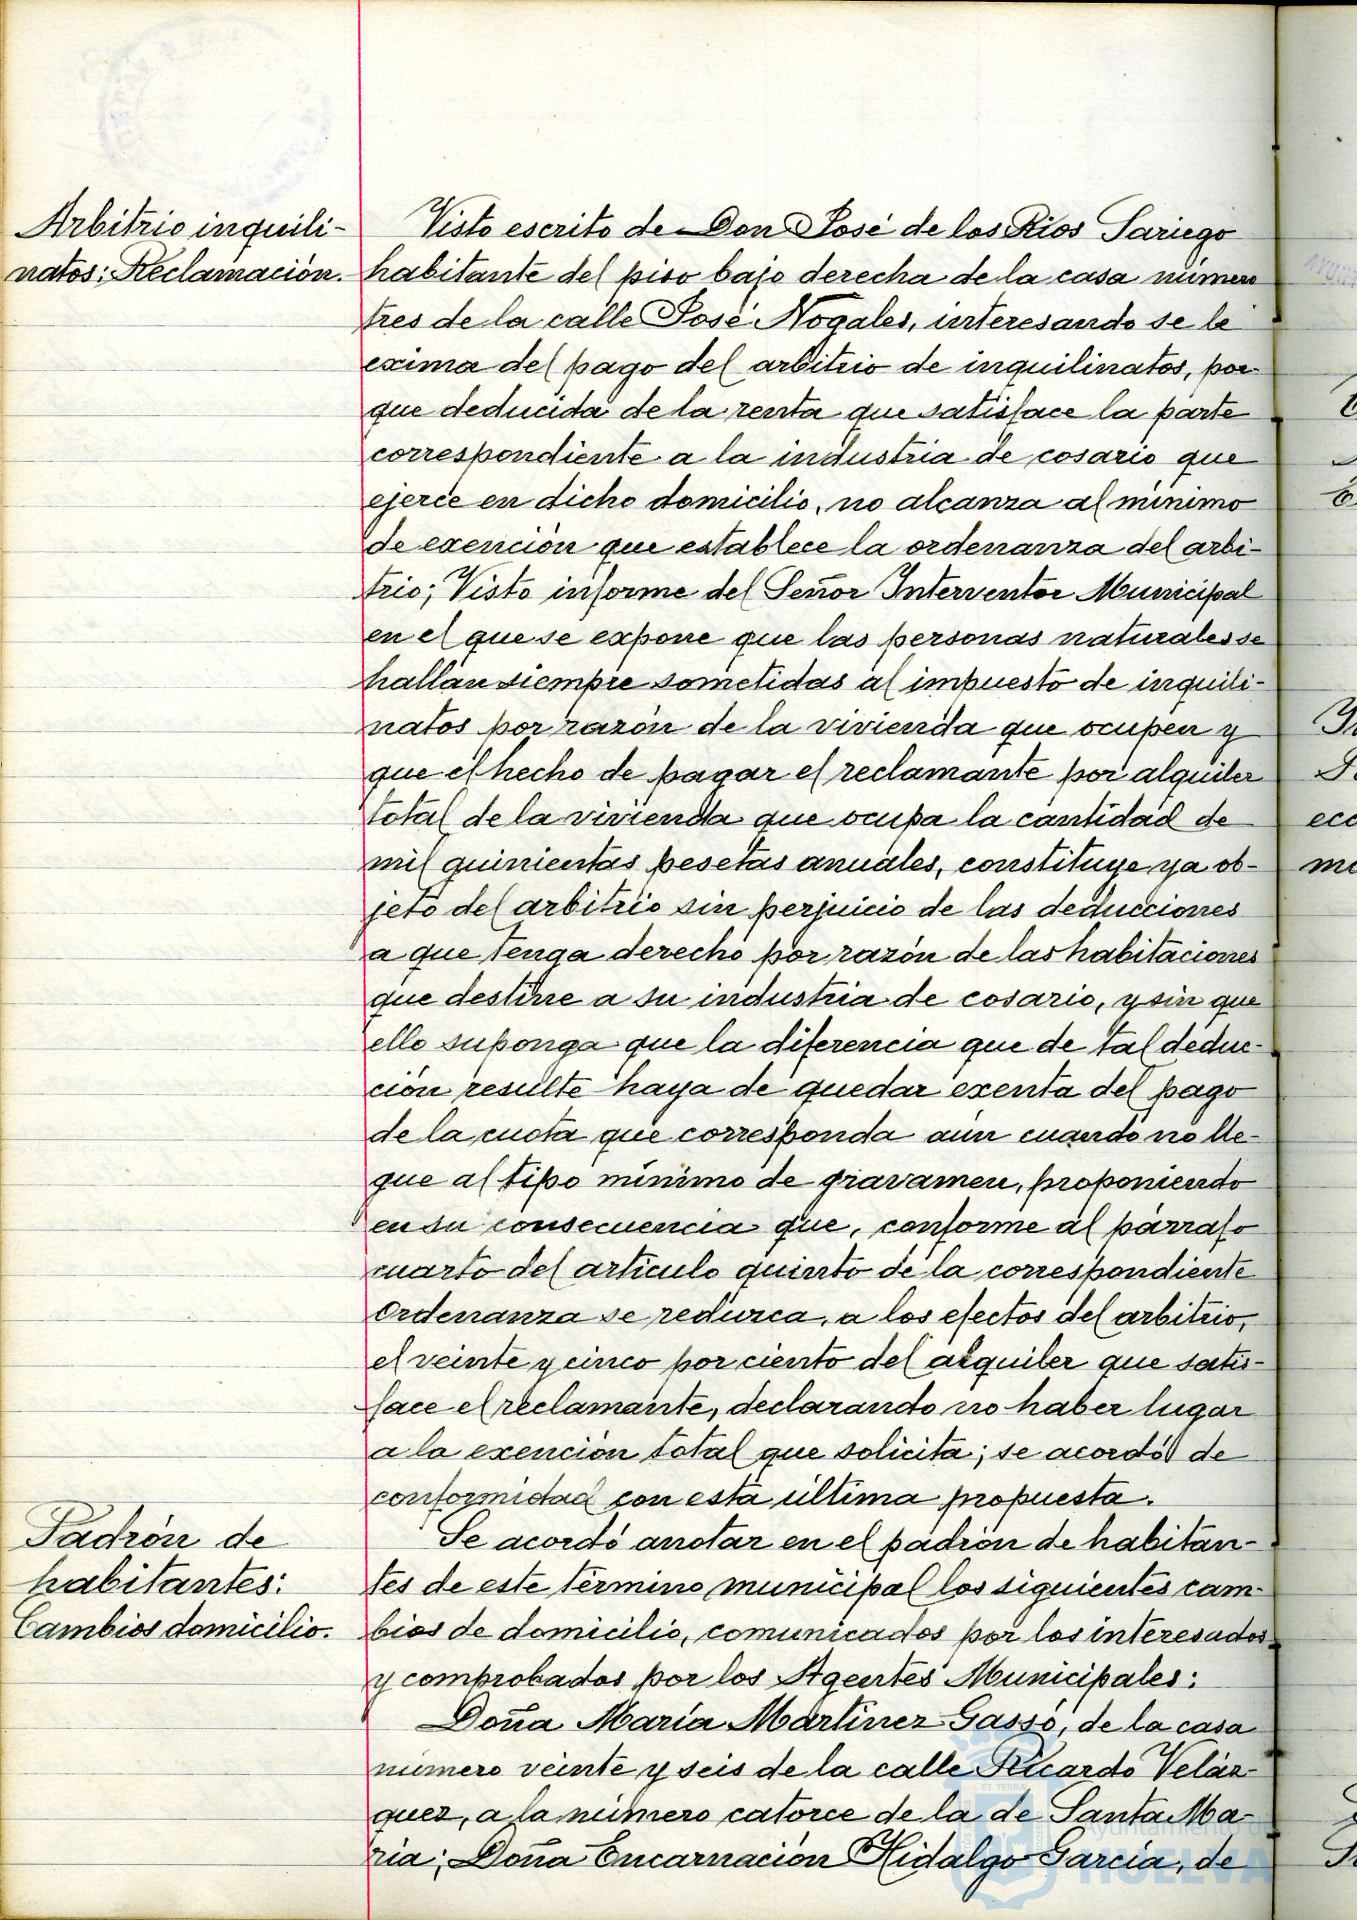 Arbitrio inquili-
natos: Reclamación.
Visto escrito de Don José de los Rios Sariego
habitante del piso bajo derecha de la casa número
tres de la calle José Nogales, interesando se le
exima del pago del arbitrio de inquilinatos, por-
que deducida de la renta que satisface la parte
correspondiente a la industria de cosario que
ejerce en dicho domicilio, no alcanza al mínimo
de exención que establece la ordenanza del arbi-
trio; Visto informe del Señor Interventor Municipal
en el que se expone que las personas naturales se
hallan siempre sometidas al impuesto de inquili-
natos por razón de la vivienda que ocupen y
que el hecho de pagar el reclamante por alquiler
total de la vivienda que ocupa la cantidad de
mil quinientas pesetas anuales, constituye ya ob-
jeto del arbitrio sin perjuicio de las deducciones
a que tenga derecho por razón de las habitaciones
que destine a su industria de cosario, y sin que
ello suponga que la diferencia que de tal deduc-
ción resulte haya de quedar exenta del pago
de la cuota que corresponda aún cuando no lle-
gue al tipo mínimo de gravamen, proponiendo
en su consecuencia que, conforme al párrafo
cuarto del artículo quinto de la correspondiente
Ordenanza se reduzca, a los efectos del arbitrio,
el veinte y cinco por ciento del alquiler que satis-
face el reclamante, declarando no haber lugar
a la exención total que solicita; se acordó de
conformidad con esta última propuesta.
Padrón de
habitantes:
Cambios domicilio.
Se acordó anotar en el padrón de habitan-
tes de este término municipal los siguientes cam-
bios de domicilio, comunicados por los interesados
y comprobados por los Agentes Municipales:
Doña María Martínez Gassó, de la casa
número veinte y seis de la calle Ricardo Veláz-
quez, a la número catorce de la de Santa Ma-
ría; Doña Encarnación Hidalgo García, de
Ayuntamiento de
HUELVA